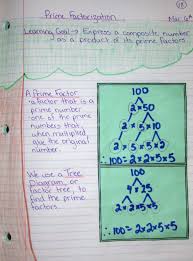 18
Prime Factorization
Mar. 6th
Learning Goal → Express a composite number
as a product of its prime factors.
A Prime Factor
a factor that is a
prime number
one of the prime
numbers that,
when multiplied
give the original
number.
100
2 × 50
2 × 5 × 10
2 × 5 × 5 × 2
∴ 100 = 2×2×5×5
We use a Tree
Diagram, or
factor tree, to
find the prime
factors.
100
4 × 25
2×2×5×5
∴ 100 = 2×2×5×5